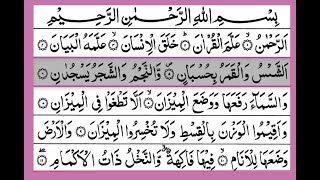 بِسْمِ اللهِ الرَّحْمٰنِ الرَّحِيْمِ
اَلرَّحْمٰنُ ۙ عَلَّمَ الْقُرْاٰنَ ؕ خَلَقَ الْاِنْسَانَ ۙ عَلَّمَهُ الْبَيَانَ
اَلشَّمْسُ وَالْقَمَرُ بِحُسْبَانٍ ۪ وَّالنَّجْمُ وَالشَّجَرُ يَسْجُدٰنِ
وَالسَّمَآءَ رَفَعَهَا وَوَضَعَ الْمِيْزَانَ ۙ اَلَّا تَطْغَوْا فِى الْمِيْزَانِ
وَاَقِيْمُوا الْوَزْنَ بِالْقِسْطِ وَلَا تُخْسِرُوا الْمِيْزَانَ وَالْاَرْضَ
وَضَعَهَا لِلْاَنَامِ ۙ فِيْهَا فَاكِهَةٌ ۙ وَّالنَّخْلُ ذَاتُ الْاَكْمَامِ ۖ